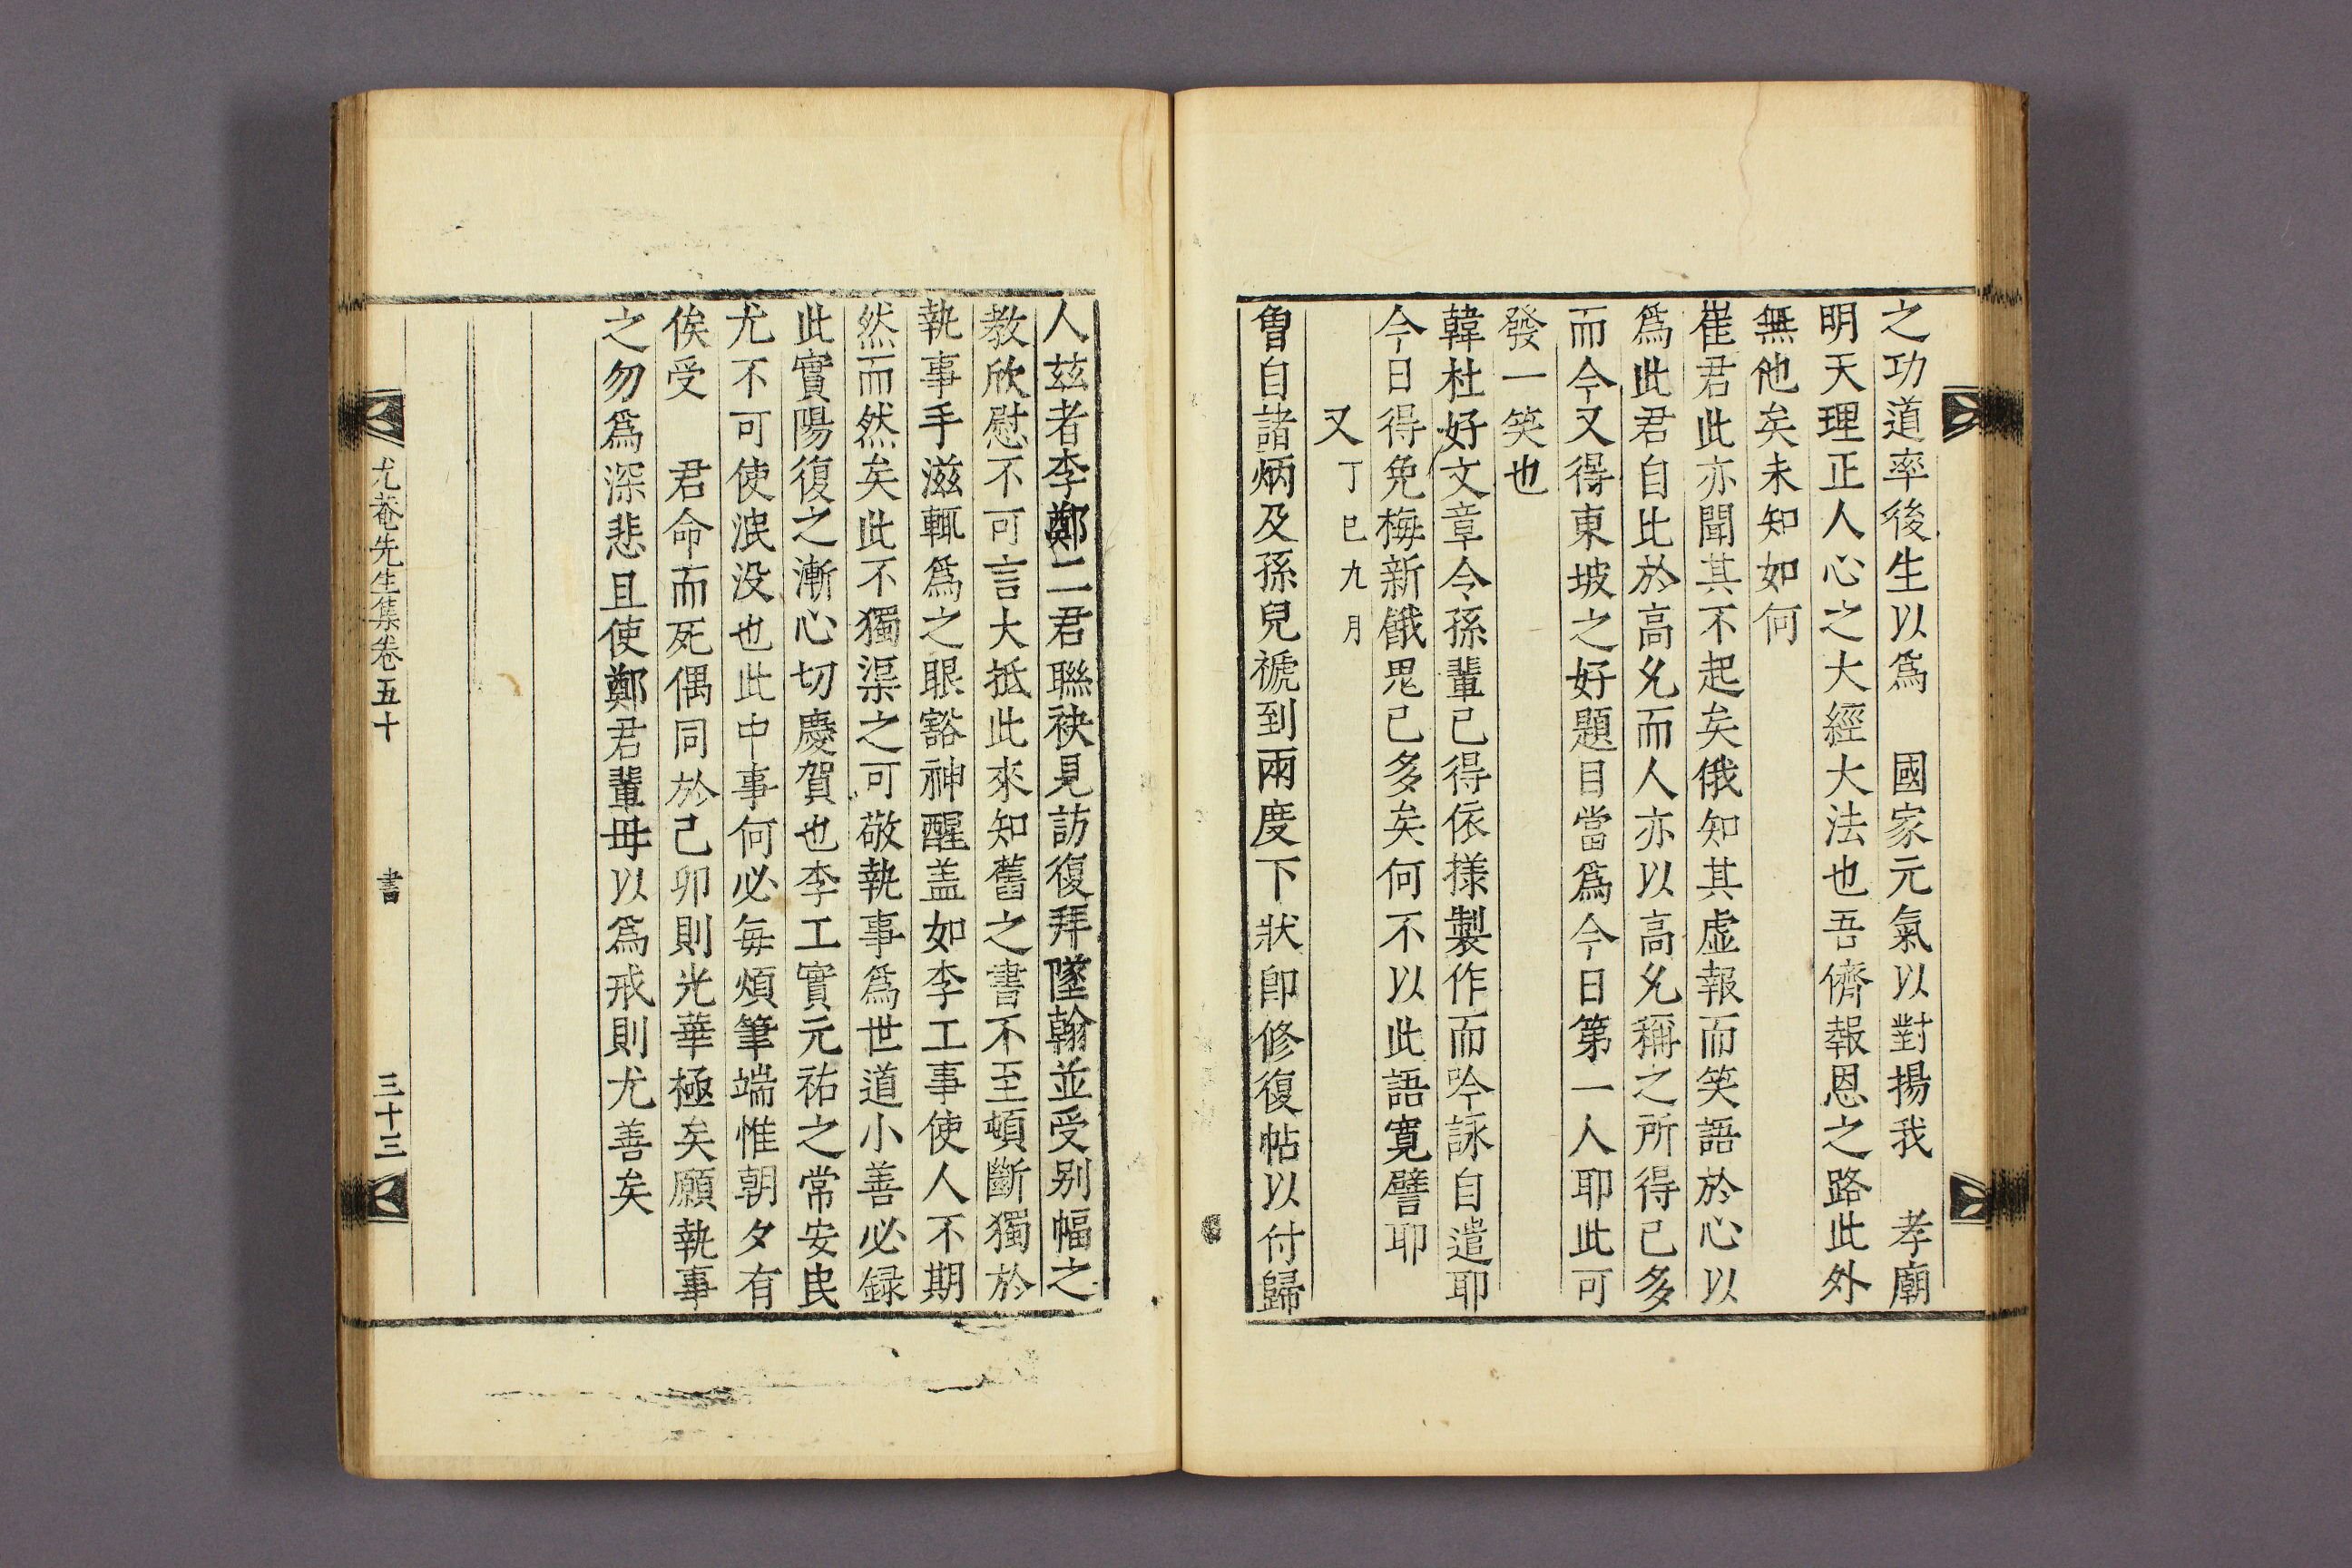 之功道率後生以爲　國家元氣以對揚我　孝廟
明天理正人心之大經大法也吾儕報恩之路此外
無他矣未知如何
崔君此亦聞其不起矣俄知其虛報而笑語於心以
爲此君自比於高允而人亦以高允稱之所得已多
而今又得東坡之好題目當爲今日第一人耶此可
發一笑也
韓杜好文章令孫輩已得依樣製作而吟詠自遣耶
今日得免梅新餓鬼已多矣何不以此語寬譬耶
又丁巳九月
曾自諸炳及孫兒褫到兩度下狀卽修復帖以付歸
人玆者李鄭二君聯袂見訪復拜墜翰並受别幅之
教欣慰不可言大抵此來知舊之書不至頓斷獨於
執事手滋輒爲之眼豁神醒盖如李工事使人不期
然而然矣此不獨渠之可敬執事爲世道小善必録
此實陽復之漸心切慶賀也李工實元祐之常安民
尤不可使泯没也此中事何必每煩筆端惟朝夕有
俟受　君命而死偶同於己卯則光華極矣願執事
之勿爲深悲且使鄭君輩毋以爲戒則尤善矣
尤菴先生集卷五十　書　三十三